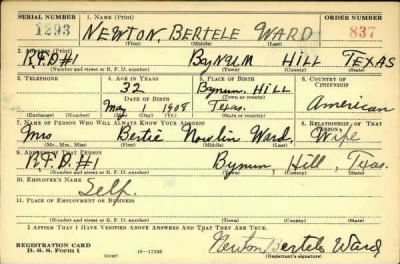 SERIAL NUMBER 1. NAME (Print) ORDER NUMBER
1293 NEWTON, BERTELE WARD 837
(First) (Middle) (Last)
2. ADDRESS (Print)
R.F.D #1 BYNUM HILL TEXAS
(Number and street or R. F. D. number) (Town) (County) (State)
3. TELEPHONE 4. AGE IN YEARS 5. PLACE OF BIRTH 6. COUNTRY OF CITIZENSHIP
32 Bynum, HILL
DATE OF BIRTH (Town) (County)
May 1 1908 Texas. American
(Exchange) (Number) (Mo.) (Day) (Yr.) (State or country)
7. NAME OF PERSON WHO WILL ALWAYS KNOW YOUR ADDRESS 8. RELATIONSHIP OF THAT PERSON
Mrs Bertie Nowlin Ward, Wife
(Mr., Mrs., Miss) (First) (Middle) (Last)
9. ADDRESS OF THAT PERSON
R.F.D. #1 Bynum, Hill, Texas.
(Number and street or R. F. D. number) (Town) (County) (State)
10. EMPLOYER'S NAME
Self.
11. PLACE OF EMPLOYMENT OR BUSINESS
(Number and street or R. F. D. number) (Town) (County) (State)
I AFFIRM THAT I HAVE VERIFIED ABOVE ANSWERS AND THAT THEY ARE TRUE.
REGISTRATION CARD
D. S. S. Form 1 Newton Bertele Ward
(over) (Registrant's signature)